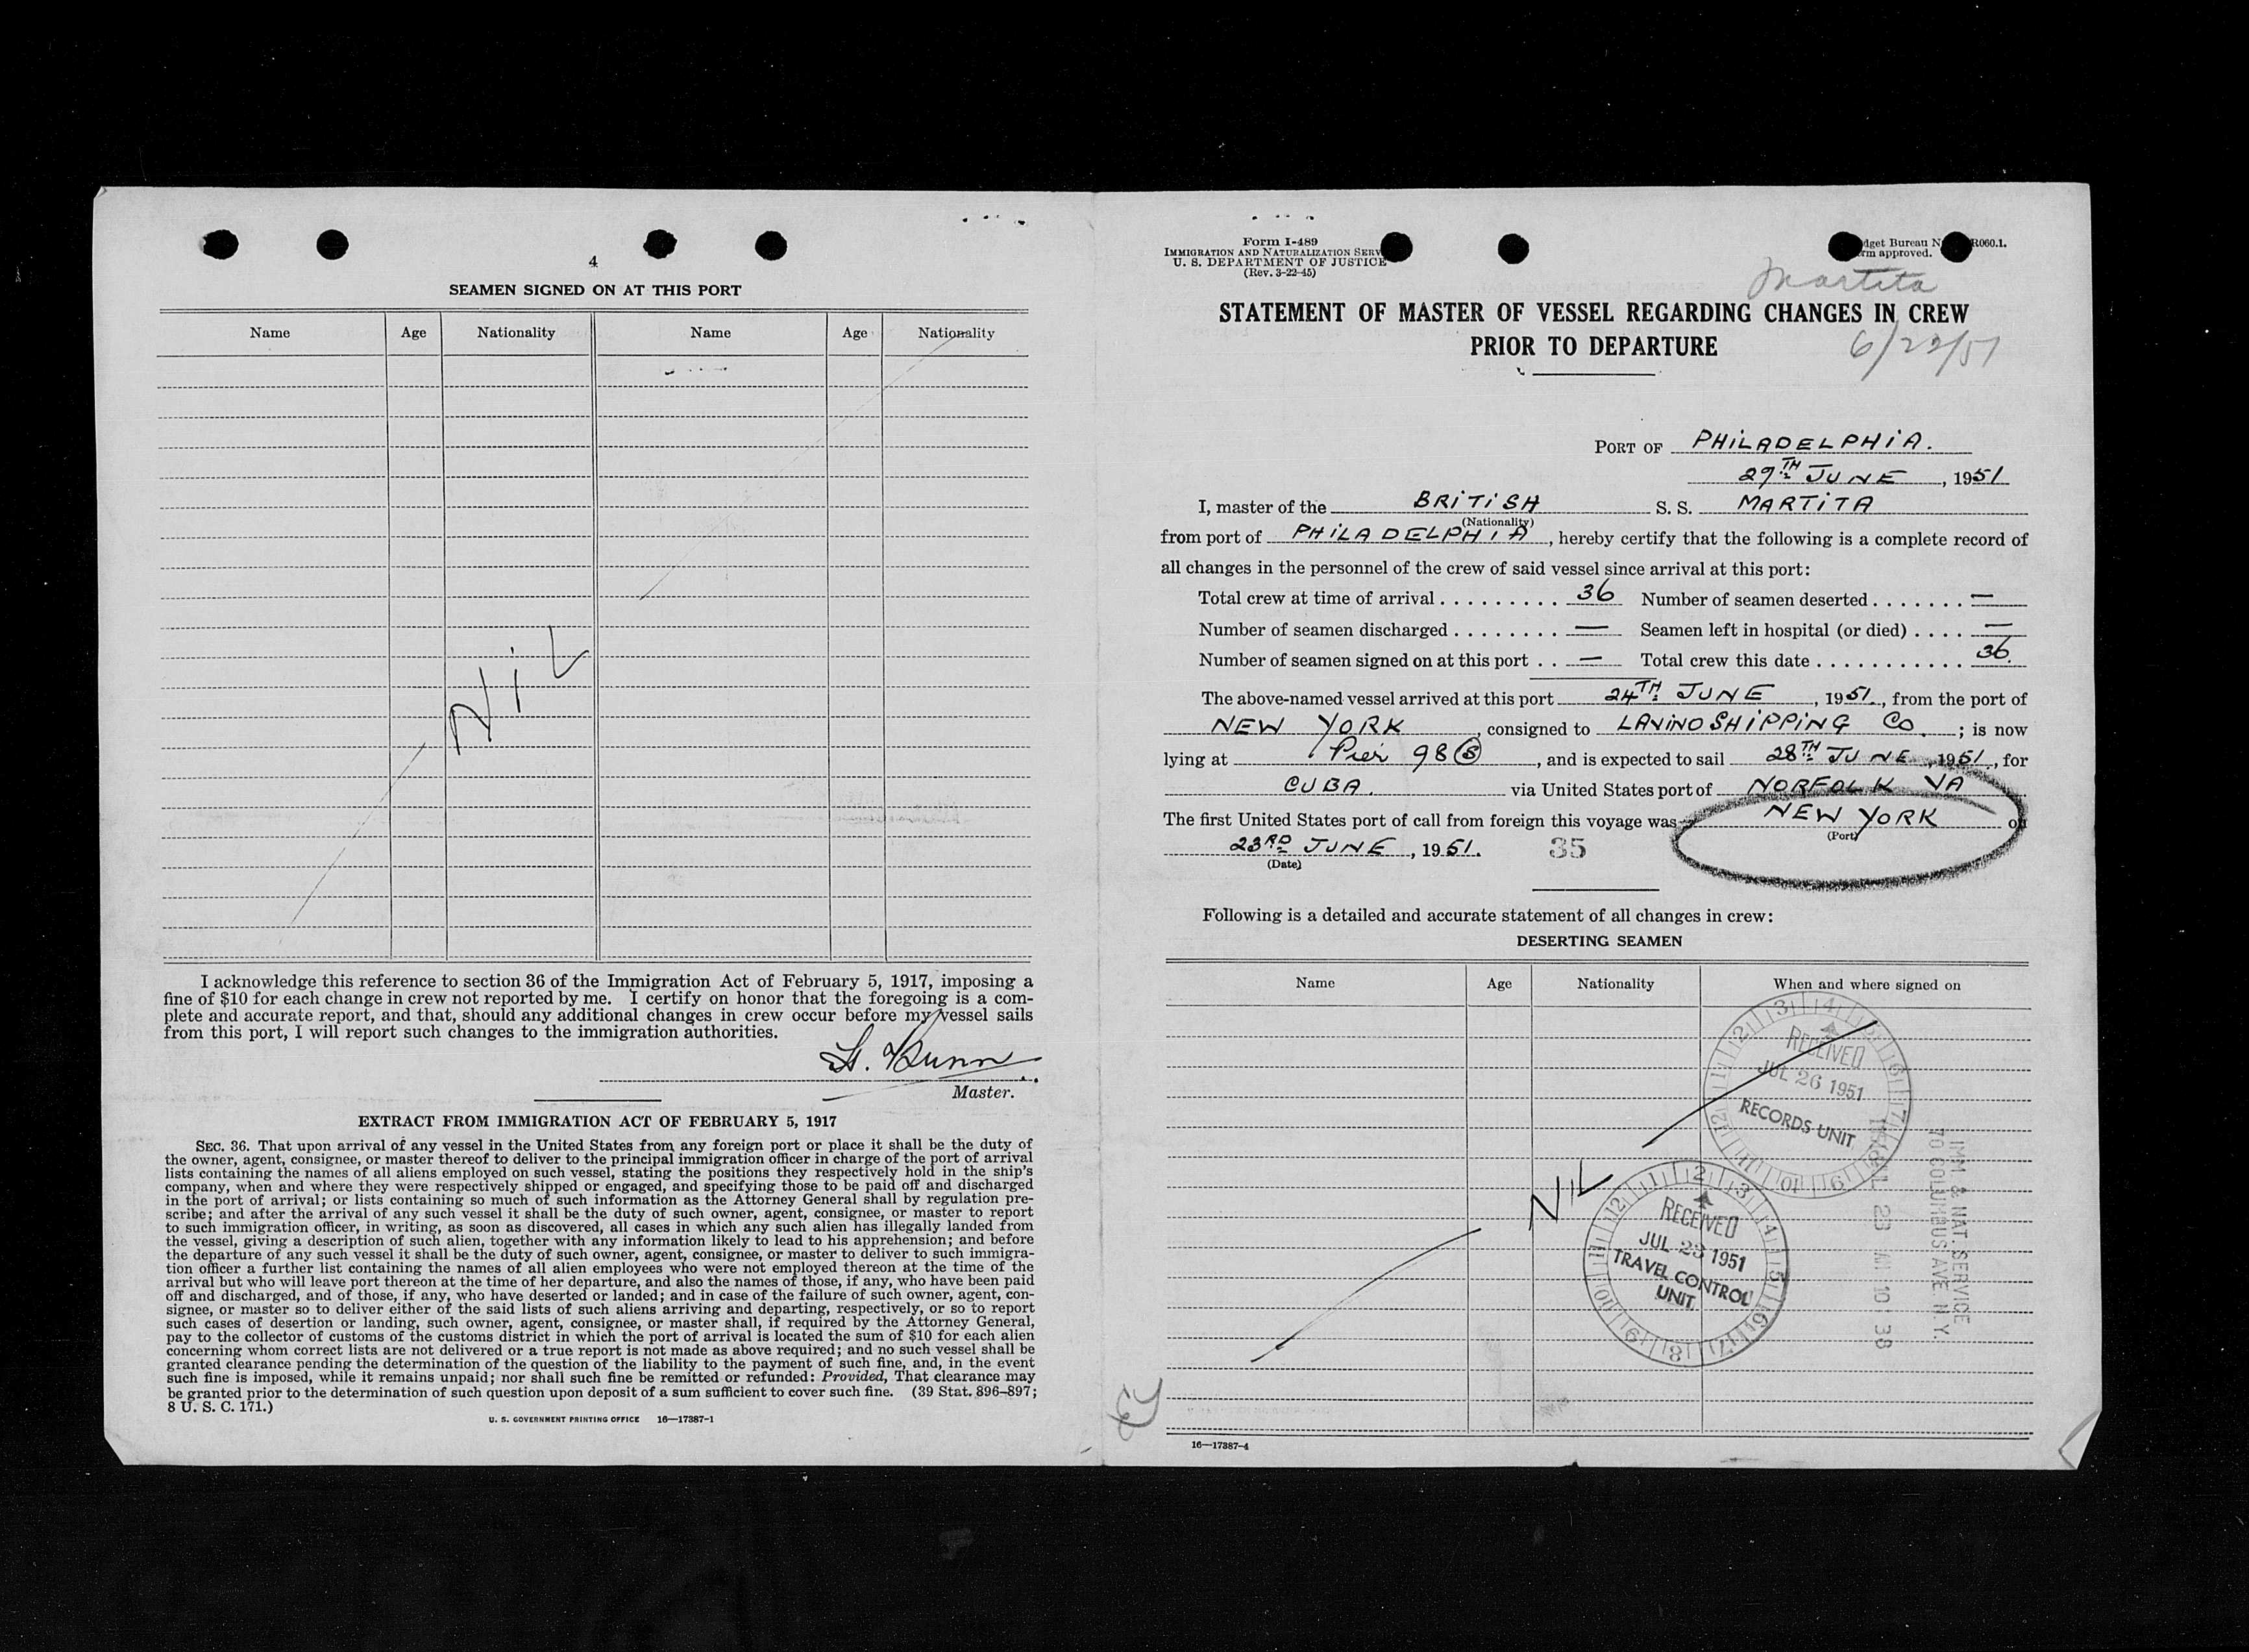 4
SEAMEN SIGNED ON AT THIS PORT
Name Age Nationality Name Age Nationality
NiL
I acknowledge this reference to section 36 of the Immigration Act of February 5, 1917, imposing a
fine of $10 for each change in crew not reported by me. I certify on honor that the foregoing is a com-
plete and accurate report, and that, should any additional changes in crew occur before my vessel sails
from this port, I will report such changes to the immigration authorities.
Master.
EXTRACT FROM IMMIGRATION ACT OF FEBRUARY 5, 1917
SEC. 36. That upon arrival of any vessel in the United States from any foreign port or place it shall be the duty of
the owner, agent, consignee, or master thereof to deliver to the principal immigration officer in charge of the port of arrival
lists containing the names of all aliens employed on such vessel, stating the positions they respectively hold in the ship's
company, when and where they were respectively shipped or engaged, and specifying those to be paid off and discharged
in the port of arrival; or lists containing so much of such information as the Attorney General shall by regulation pre-
scribe; and after the arrival of any such vessel it shall be the duty of such owner, agent, consignee, or master to report
to such immigration officer, in writing, as soon as discovered, all cases in which any such alien has illegally landed from
the vessel, giving a description of such alien, together with any information likely to lead to his apprehension; and before
the departure of any such vessel it shall be the duty of such owner, agent, consignee, or master to deliver to such immigra-
tion officer a further list containing the names of all alien employees who were not employed thereon at the time of the
arrival but who will leave port thereon at the time of her departure, and also the names of those, if any, who have been paid
off and discharged, and of those, if any, who have deserted or landed; and in case of the failure of such owner, agent, con-
signee, or master so to deliver either of the said lists of such aliens arriving and departing, respectively, or so to report
such cases of desertion or landing, such owner, agent, consignee, or master shall, if required by the Attorney General,
pay to the collector of customs of the customs district in which the port of arrival is located the sum of $10 for each alien
concerning whom correct lists are not delivered or a true report is not made as above required; and no such vessel shall be
granted clearance pending the determination of the question of the liability to the payment of such fine, and, in the event
such fine is imposed, while it remains unpaid; nor shall such fine be remitted or refunded: Provided, That clearance may
be granted prior to the determination of such question upon deposit of a sum sufficient to cover such fine. (39 Stat. 896-897;
8 U. S. C. 171.)
U. S. GOVERNMENT PRINTING OFFICE 16—17387-1
Form I-489
IMMIGRATION AND NATURALIZATION SERV
U. S. DEPARTMENT OF JUSTICE
(Rev. 3-22-45)
dget Bureau N R060.1.
rm approved.
Martita
STATEMENT OF MASTER OF VESSEL REGARDING CHANGES IN CREW
PRIOR TO DEPARTURE
6/22/51
PORT OF PHiLADELPHiA.
27TH JUNE, 1951
I, master of the BRiTiSH S. S. MARTiTA
(Nationality)
from port of PHiLADELPHiA, hereby certify that the following is a complete record of
all changes in the personnel of the crew of said vessel since arrival at this port:
Total crew at time of arrival . . . . . . . . . 36 Number of seamen deserted . . . . . . . —
Number of seamen discharged . . . . . . . . — Seamen left in hospital (or died) . . . . —
Number of seamen signed on at this port . . — Total crew this date . . . . . . . . . . . . 36.
The above-named vessel arrived at this port 24TH JUNE, 1951., from the port of
NEW YORK, consigned to LAVINO SHiPPiNG Co.; is now
lying at Pier 98 S, and is expected to sail 28TH JUNE, 1951, for
CUBA. via United States port of NORFOLK VA
The first United States port of call from foreign this voyage was NEW YORK on
(Port)
23RD JUNE, 1951. 35
(Date)
Following is a detailed and accurate statement of all changes in crew:
DESERTING SEAMEN
Name Age Nationality When and where signed on
RECEIVED
JUL 26 1951
RECORDS UNIT
NiL
RECEIVED
JUL 23 1951
TRAVEL CONTROL
UNIT
IMM & NAT. SERVICE
70 COLUMBUS AVE. N.Y.
23 AM 10 38
16—17387-4